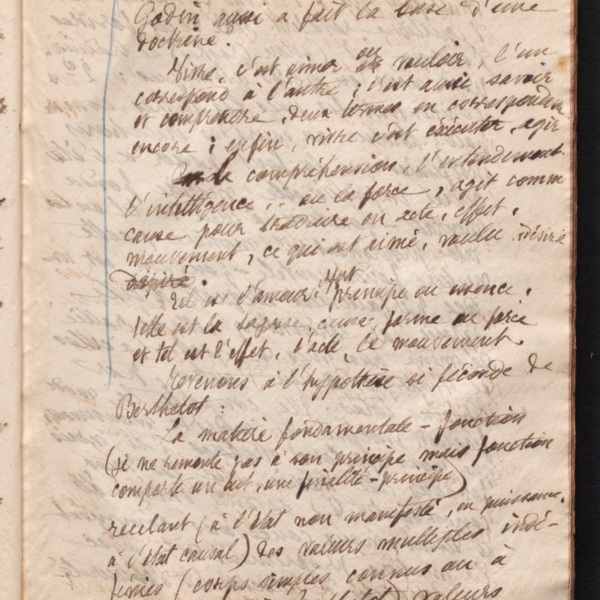 Godin aussi a fait la base d'une
doctrine.
Vivre, c'est aimer ou vouloir, l'un
correspond à l'autre; c'est aussi savoir
et comprendre, deux termes en correspondance
encore; enfin, vivre c'est exécuter, agir
la compréhension, l'entendement
l'intelligence .. ou la force, agit comme
cause pour traduire en acte, effet,
mouvement, ce qui est aimé, voulu, désiré
Tel est l'amour: principe ou essence,
telle est la sagesse, cause, forme ou force
et tel est l'effet, l'acte, le mouvement.
Revenons à l'hypothèse si féconde de
Berthelot:
La matière fondamentale - fonction
(je ne remonte pas à son principe mais fonction
comporte un but, une finalité-principe)
recelant (à l'état non manifesté, en puissance,
à l'état causal) des valeurs multiples indé-
finies (corps simples connus ou à
valeurs